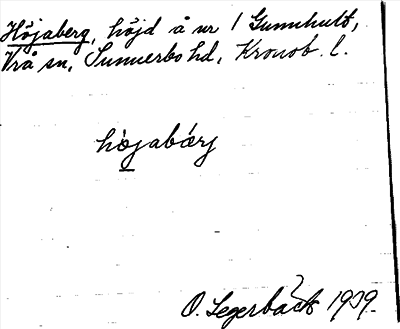 Höjaberg, höjd å nr 1 Gunnhult,
Vrå sn, Sunnerbo hd, Kronob. l.
höjabärj
O. Segerbäck 1939.